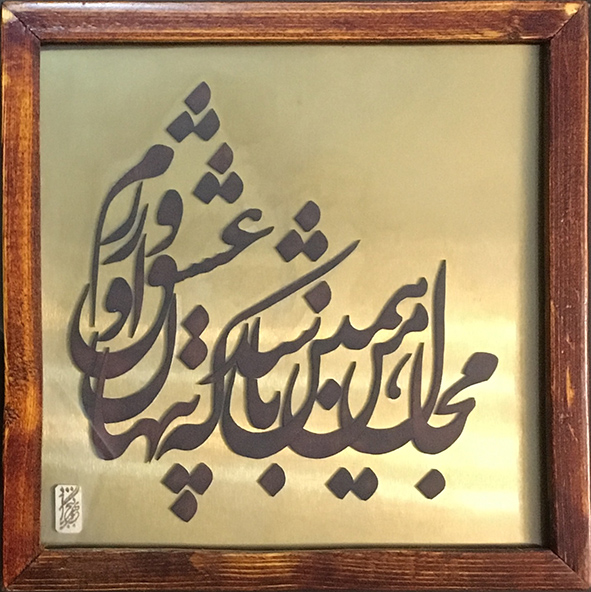 مجال من همین باشد که پنهان عشق او ورزم